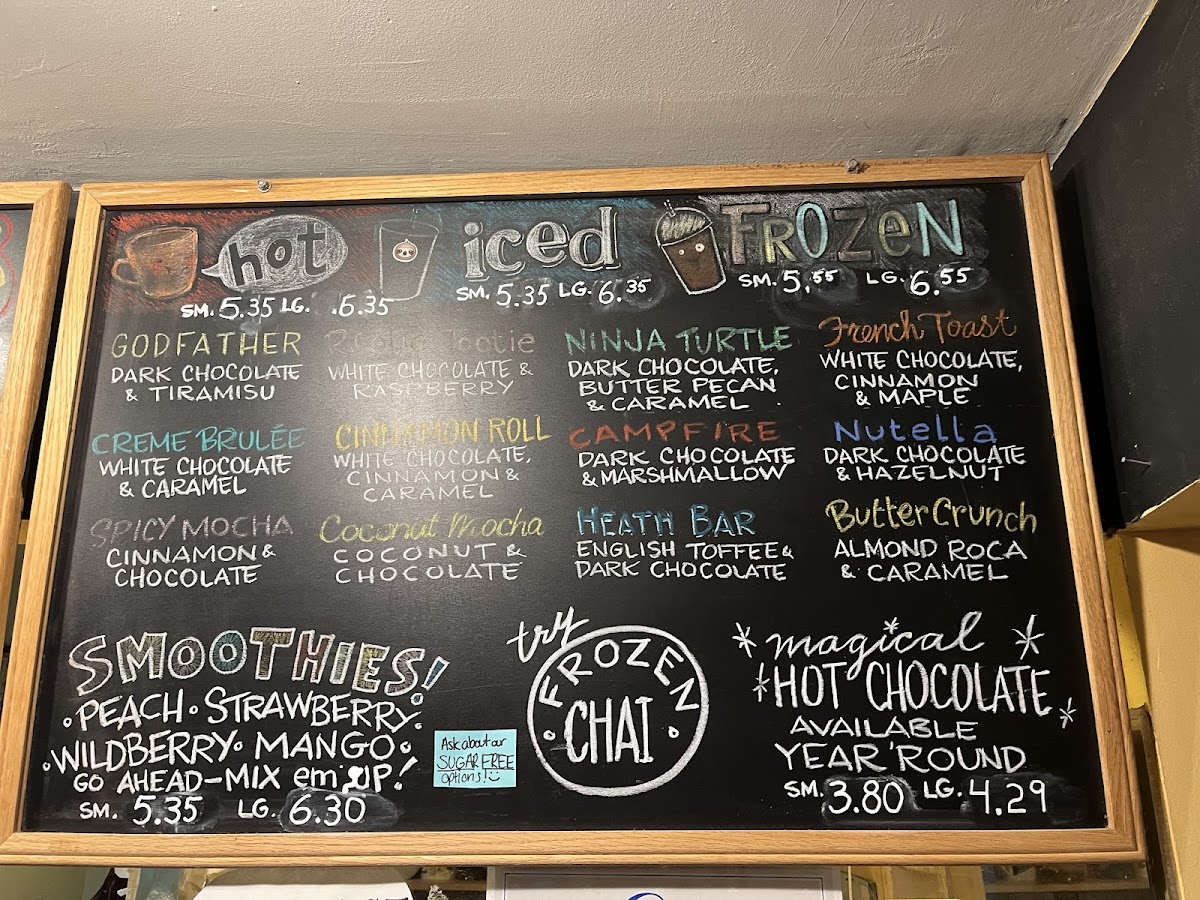 hot
SM. 5.35 LG. .6.35
iced
SM. 5.35 LG. 6.35
FROZEN
SM. 5.55 LG. 6.55
GODFATHER
DARK CHOCOLATE
& TIRAMISU
WHITE CHOCOLATE &
RASPBERRY
NINJA TURTLE
DARK CHOCOLATE,
BUTTER PECAN
& CARAMEL
French Toast
WHITE CHOCOLATE,
CINNAMON
& MAPLE
CREME BRULÉE
WHITE CHOCOLATE
& CARAMEL
CINNAMON ROLL
WHITE CHOCOLATE,
CINNAMON &
CARAMEL
CAMPFIRE
DARK CHOCOLATE
& MARSHMALLOW
Nutella
DARK CHOCOLATE
& HAZELNUT
SPICY MOCHA
CINNAMON &
CHOCOLATE
Coconut Mocha
COCONUT &
CHOCOLATE
HEATH BAR
ENGLISH TOFFEE &
DARK CHOCOLATE
Butter Crunch
ALMOND ROCA
& CARAMEL
SMOOTHIES!
• PEACH • STRAWBERRY •
• WILDBERRY • MANGO •
GO AHEAD-MIX em UP!
SM. 5.35 LG. 6.30
Ask about our
SUGAR FREE
options!
try
FROZEN
• CHAI •
magical
HOT CHOCOLATE
AVAILABLE
YEAR 'ROUND
SM. 3.80 LG. 4.29